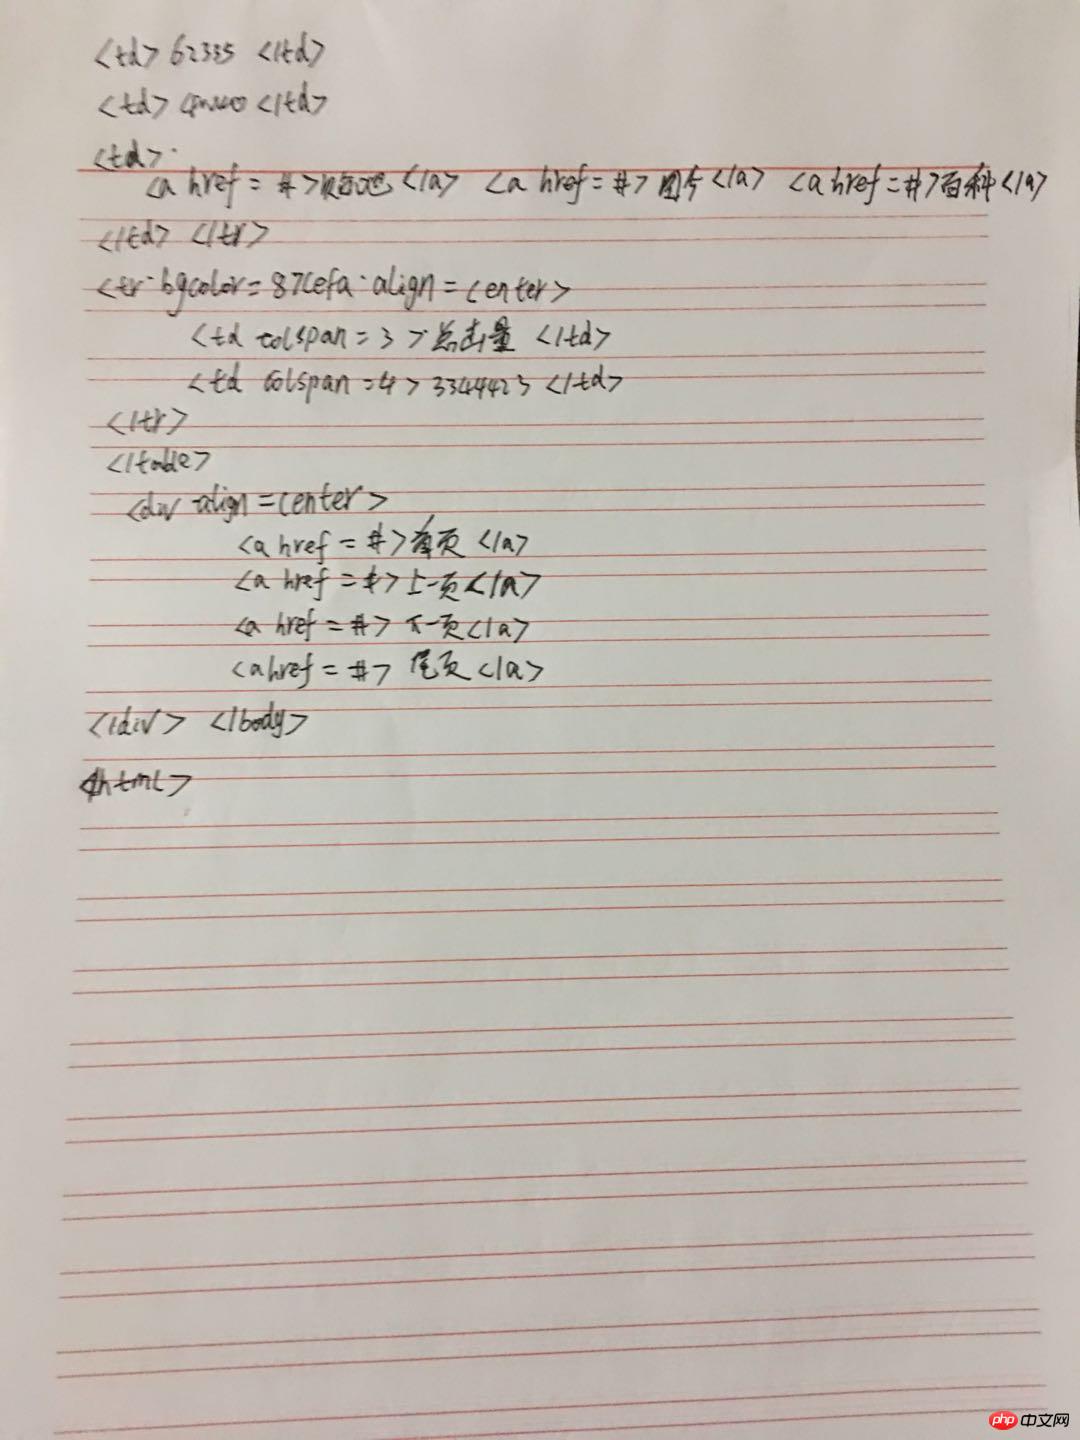 <td> 62335 </td>
<td> </td>
<td>
<a href = #>贴吧</a> <a href = #> 图片</a> <a href = #>百科</a>
</td> </tr>
<tr bgcolor = 87cefa align = center>
<td colspan = 3 >总击量 </td>
<td colspan = 4 > 3344423 </td>
</tr>
</table>
<div align = center>
<a href = #>首页 </a>
<a href = #>上一页</a>
<a href = #> 下一页</a>
<a href = #> 尾页 </a>
</div> </body>
</html>
php 中文网